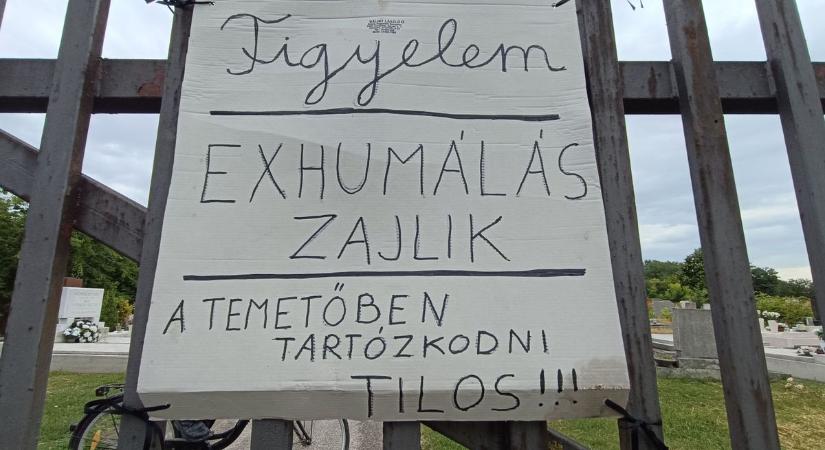 Figyelem
EXHUMÁLÁS
ZAJLIK
A TEMETŐBEN
TARTÓZKODNI
TILOS!!!